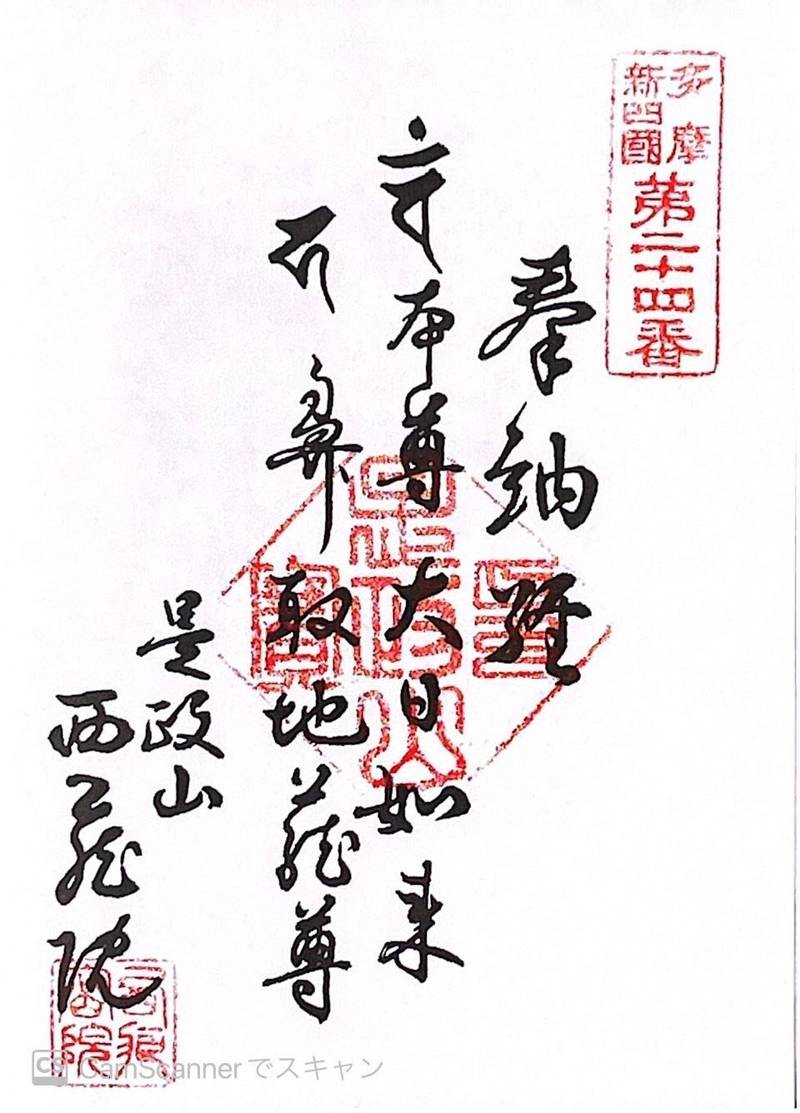 多摩
新四國
第二十四番
奉納経
守本尊大日如来
鼻取地蔵尊
是政山
西蔵院
CamScannerでスキャン